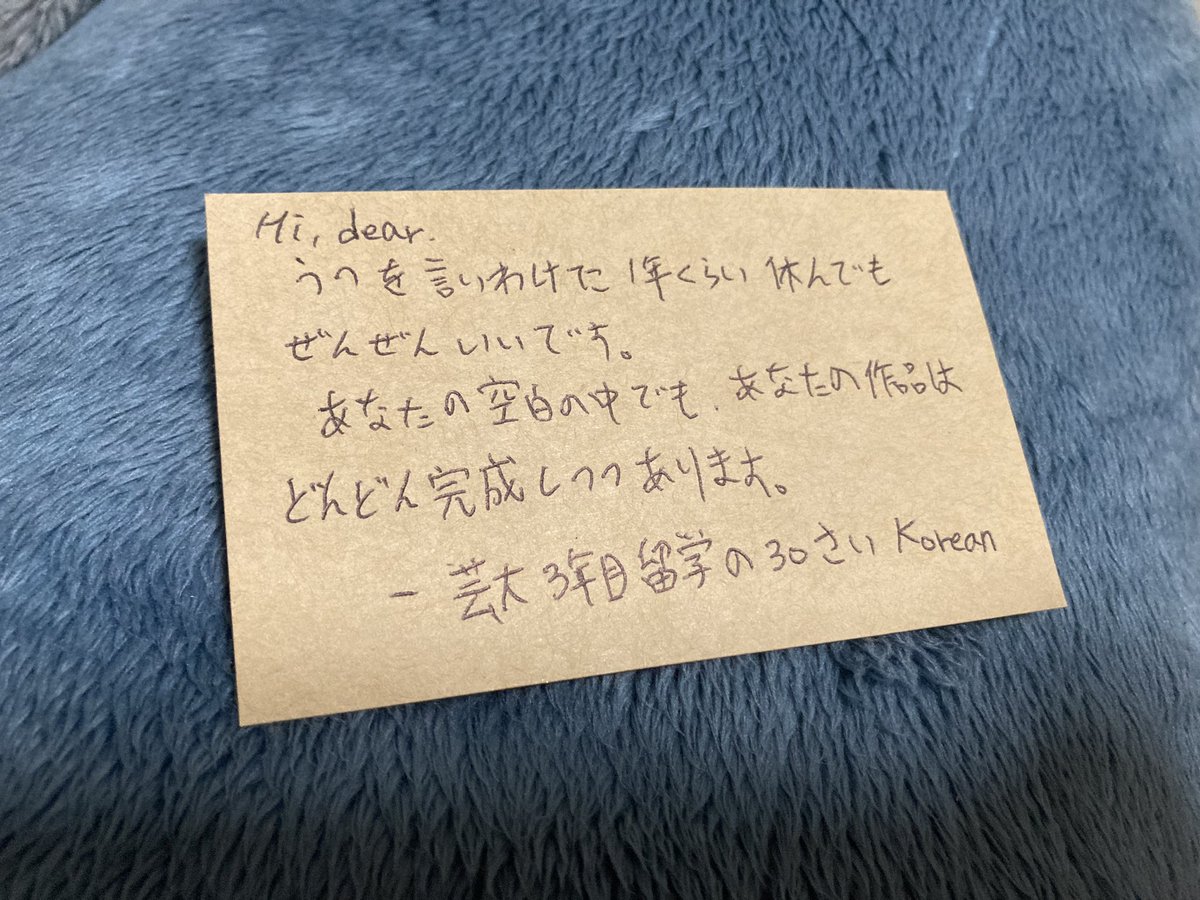 Hi, dear.
うつを言いわけに1年くらい休んでも
ぜんぜんいいです。
あなたの空白の中でも、あなたの作品は
どんどん完成しつつあります。
- 芸大3年目留学の30さい Korean